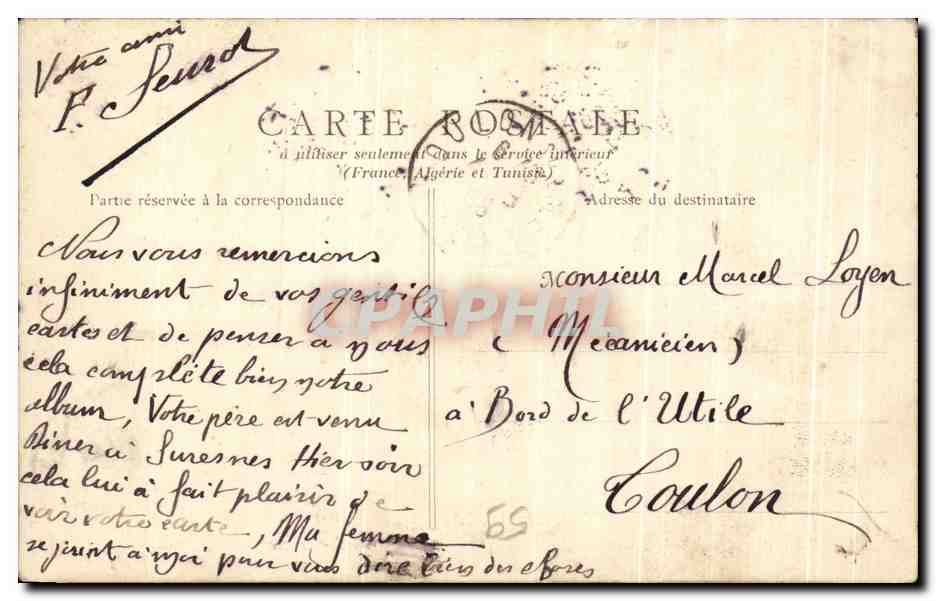 Votre ami
F. Seurot
CARTE POSTALE
à utiliser seulement dans le service intérieur
(France, Algérie et Tunisie)
Partie réservée à la correspondance
Adresse du destinataire
Nous vous remercions
infiniment de vos gentils
cartes et de penser a nous
cela complète bien notre
album, Votre père est venu
Diner à Suresnes Hier soir
cela lui à fait plaisir de
voir votre carte, Ma femme
se joint à moi pour vous dire bien des choses
Monsieur Marcel Loyen
(Mécanicien)
à Bord de l'Utile
Toulon
65
CPAPHIL